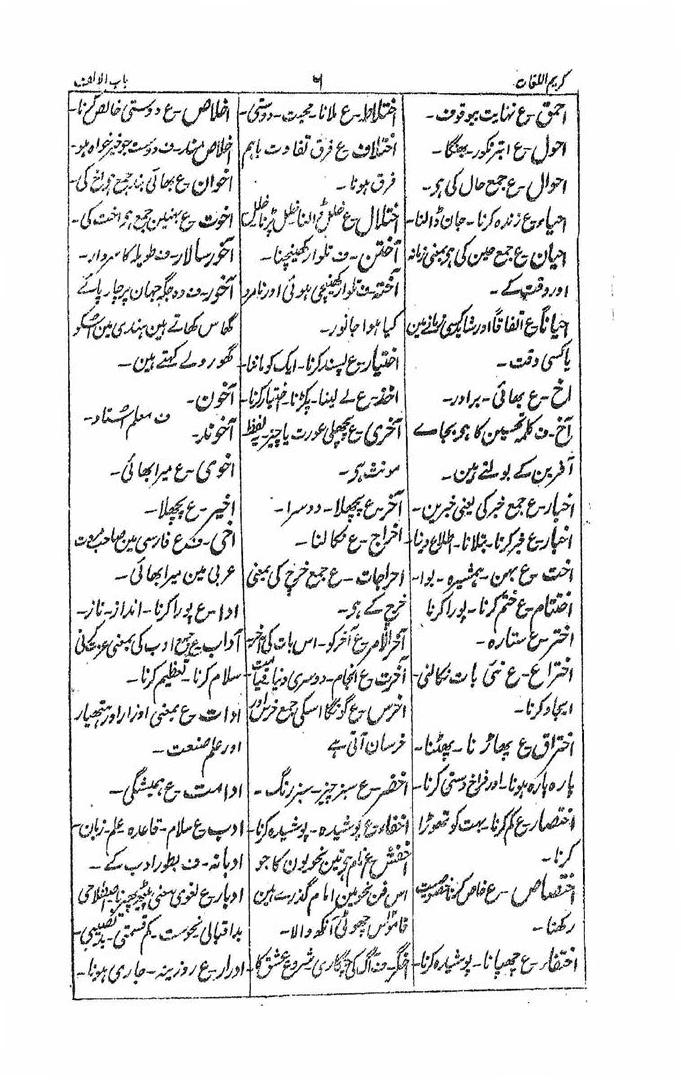 کریم اللغات
۶
باب الالف
احمق۔ع نہایت بیوقوف۔
احول۔ع ابتر فکور۔بھنگا۔
احوال۔ع جمع حال کی ہی۔
احیاء۔ع زندہ کرنا۔جان ڈالنا۔
احیان ع جمع حین کی ہی بمعنی زمانہ
اور وقت کے۔
احیاناً ع اتفاقاً اور شاید کسی زمانے مین
یا کسی وقت۔
اخ۔ع بھائی۔برادر۔
آخ۔ف کلمہ تحسین کا ہی بجاے
آفرین کے بولتے ہین۔
اخبار۔ع جمع خبر کی یعنی خبرین۔
اخبار۔ع خبر کرنا۔بتلانا۔اطلاع دینا۔
اخت۔ع بہن۔ہمشیرہ۔بوا۔
اختتام۔ع ختم کرنا۔پورا کرنا
اختر۔ع ستارہ۔
اختراع۔ع نئی بات نکالنی۔
ایجاد کرنا۔
اختراق۔ع پھاڑنا۔پھٹنا۔
پارہ پارہ ہونا۔اور فراخ دستی کرنا۔
اختصار۔ع کم کرنا۔بہت کو تھوڑا
کرنا۔
اختصاص۔ع خاص کرنا خصوصیت
رکھنا۔
اختفاء۔ع چھپانا۔پوشیدہ کرنا۔
اختلاط۔ع ملانا۔محبت۔دوستی۔
اختلاف ع فرق تفاوت باہم
فرق ہونا۔
اختلال۔ع خلل ڈالنا خلل پڑنا خلل
آختن۔ف تلوار کھینچنا۔
آختہ۔ف تلوار کھینچی ہوئی اور نامرد
کیا ہوا جانور۔
اختیار۔ع پسند کرنا۔ایک کو ماننا۔
اخذ۔ع لے لینا۔پکڑنا۔اختیار کرنا۔
آخری۔ع پچھلی عورت یا چیز۔یہ لفظ
مونث ہی۔
آخر۔ع پچھلا۔دوسرا۔
اخراج۔ع نکالنا۔
اخراجات۔ع جمع خرج کی بمعنی
خرج کے ہی۔
آخر الامر۔ع آخر کو۔اس بات کی آخر
آخرت۔ع انجام۔دوسری دنیا قیامت۔
اخرس۔ع گونگا اسکی جمع خرس اور
خرسان آتی ہے
اخضر۔ع سبز چیز۔سبز رنگ۔
اخفاء۔ع پوشیدہ۔پوشیدہ کرنا۔
اخفش۔ع نام ہی تین نحویون کا جو
اس فن نحو مین امام گذرے ہین
قاموس چھوٹی آنکھ والا۔
اخگر۔ف آگ کی چنگاری شروع عشق کا۔
اخلاص۔ع دوستی خالص کرنا۔
اخلاص مند۔ف دوست جو خیر خواہ ہو۔
اخوان۔ع بھائی بند جمع ہی اخ کی۔
اخوت۔ع بہنین جمع ہی اخت کی۔
آخور سالار۔ف طویلہ کا سردار۔
آخور۔ف وہ جگہ جہان پر چارپائے
گھاس کھاتے ہین ہندی مین اسکو
گھورولے کہتے ہین۔
آخون۔
آخوند۔ ف معلم استاد۔
اخوی۔ع میرا بھائی۔
اخیر۔ع پچھلا۔
اخی۔ف ع فارسی مین صاحب مروت
عربی مین میرا بھائی۔
ادا۔ع پورا کرنا۔انداز۔ناز۔
آداب ع جمع ادب کی بمعنی عزت کے
سلام کرنا۔تعظیم کرنا۔
ادات۔ع بمعنی اوزار اور ہتھیار
اور علم صنعت۔
ادامت۔ع ہمیشگی۔
ادب۔ع سلام۔قاعدہ علم۔زبان۔
ادبانہ۔ف بطور ادب کے۔
ادبار۔ع لغوی معنی پیٹھ پھیرنا اصطلاحی
بداقبالی نحوست۔کم قسمتی۔بدنصیبی۔
ادرار۔ع روزینہ۔جاری ہونا۔